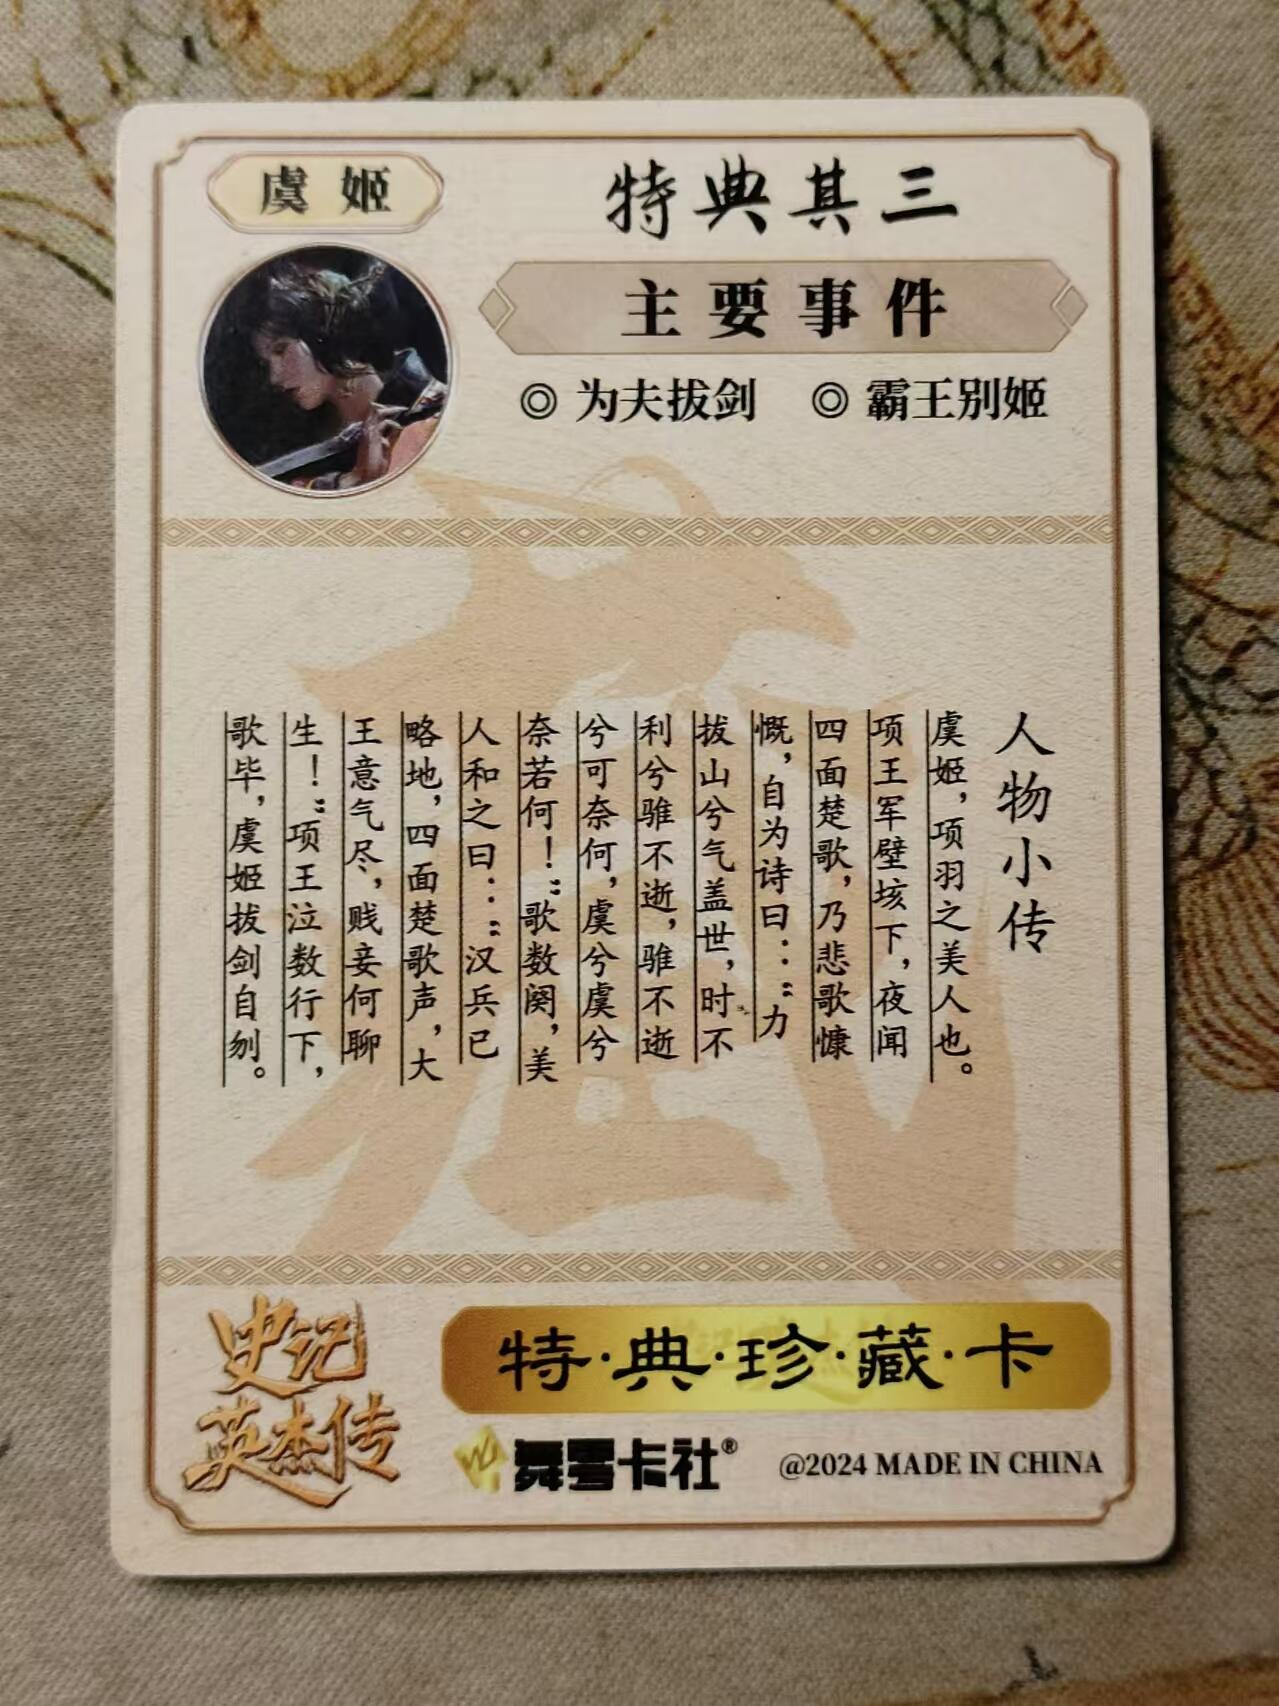 虞姬
特典其三
主要事件
◎ 为夫拔剑 ◎ 霸王别姬
人物小传
虞姬，项羽之美人也。
项王军壁垓下，夜闻
四面楚歌，乃悲歌慷
慨，自为诗曰：“力
拔山兮气盖世，时不
利兮骓不逝，骓不逝
兮可奈何，虞兮虞兮
奈若何！”歌数阕，美
人和之曰：“汉兵已
略地，四面楚歌声，大
王意气尽，贱妾何聊
生！”项王泣数行下，
歌毕，虞姬拔剑自刎。
史记
英杰传
特·典·珍·藏·卡
舞雩卡社®
@2024 MADE IN CHINA